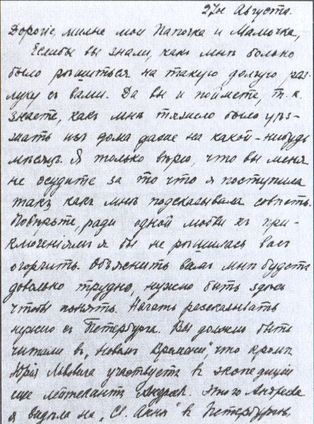 27го Августа.
Дорогіе, милые мои Папочка и Мамочка,
Еслибы вы знали, какъ мнѣ больно
было рѣшиться на такую долгую раз-
луку съ вами. Да вы и поймете, т. к.
знаете, какъ мнѣ тяжело было уѣз-
жать изъ дома даже на какой-нибудь
мѣсяцъ. Я только вѣрю, что вы меня
не осудите за то что я поступила
такъ какъ мнѣ подсказывала совѣсть.
Повѣрьте, ради одной любви къ при-
ключеніямъ я бы не рѣшилась васъ
огорчить. Объяснить вамъ мнѣ будетъ
довольно трудно, нужно быть здѣсь
чтобы понять. Начать разсказывать
нужно съ Петербурга. Вы должно быть
читали въ „Новомъ Времени", что кромѣ
Юрія Львовича участвуетъ въ экспедиціи
еще лейтенантъ Андреевъ. Этого Андреева
я видѣла на „Св. Аннѣ" въ Петербургѣ